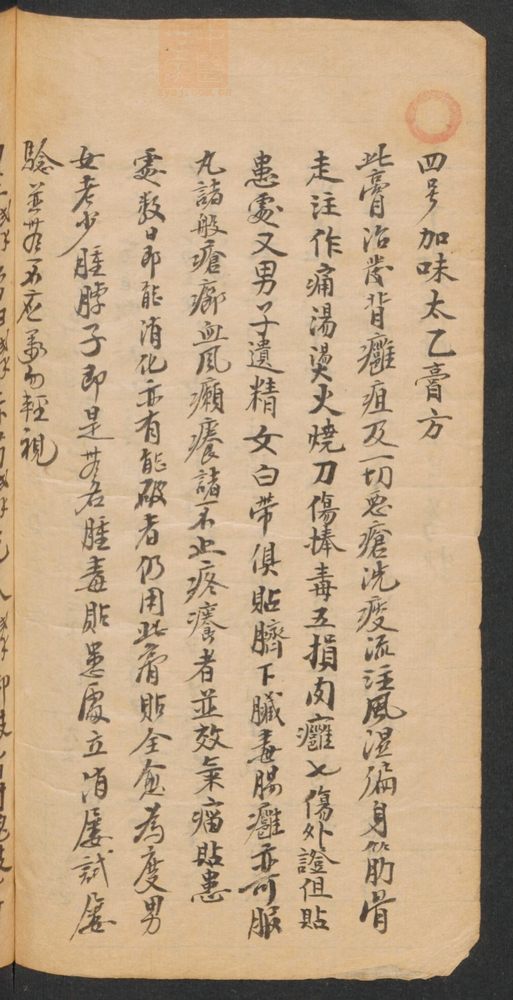 四号加味太乙膏方
此膏治發背癰疽及一切惡瘡洗痰流注風湿徧身筋骨
走注作痛湯燙火燒刀傷棒毒五損内癰七傷外證但貼
患處又男子遺精女白帶俱貼臍下臟毒腸癰亦可服
丸諸般瘡癤血風癩癢諸不止疼癢者並效氣痛貼患
處数日即能消化亦有能破者仍用此膏貼全愈為度男
女老少腫脖子即是無名腫毒貼患處立消屢試屢
驗並無不应萬勿輕視